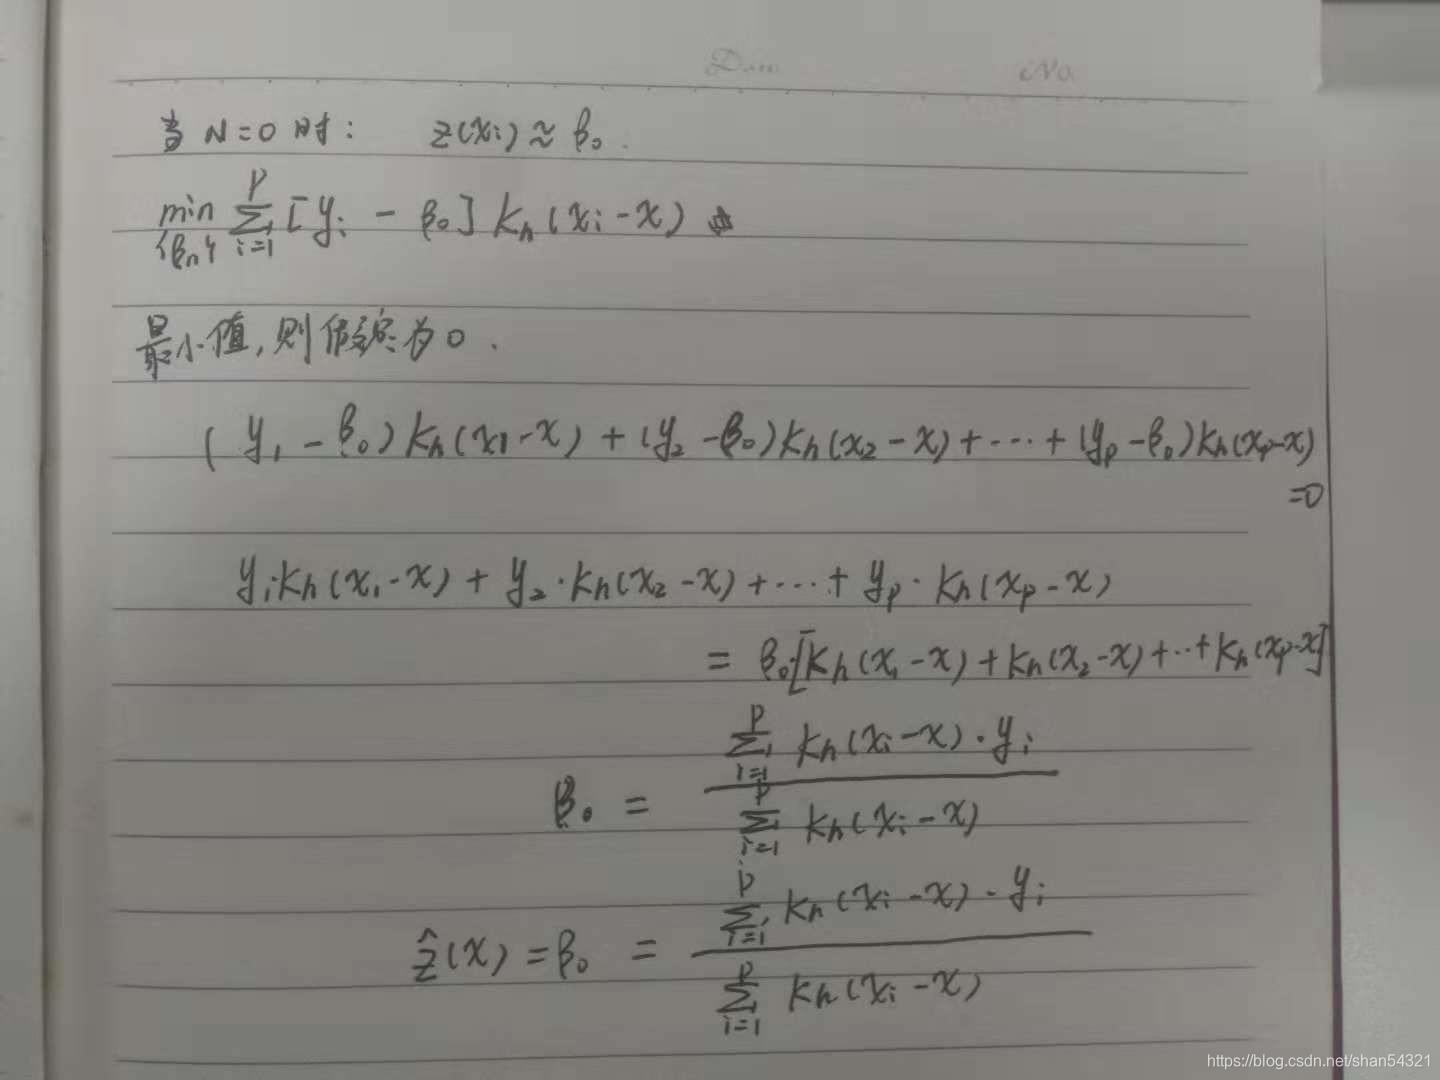 Date
No.
当 N=0 时: z(xi) ≈ β0.
min {βn} Σ_{i=1}^{P} [yi - β0] Kh(xi - x)
最小值,则假定为0.
(y1 - β0)Kh(x1-x) + (y2 - β0)Kh(x2 - x) + ··· + (yp - β0)Kh(xp-x)
=0
y1·Kh(x1 - x) + y2·Kh(x2 - x) + ··· + yp·Kh(xp - x)
= β0·[Kh(x1 - x) + Kh(x2 - x) + ··· + Kh(xp-x)]
Σ_{i=1}^{P} Kh(xi - x)·yi
β0 =
Σ_{i=1}^{P} Kh(xi - x)
Σ_{i=1}^{P} Kh(xi - x)·yi
ẑ(x) = β0 =
Σ_{i=1}^{P} Kh(xi - x)
https://blog.csdn.net/shan54321